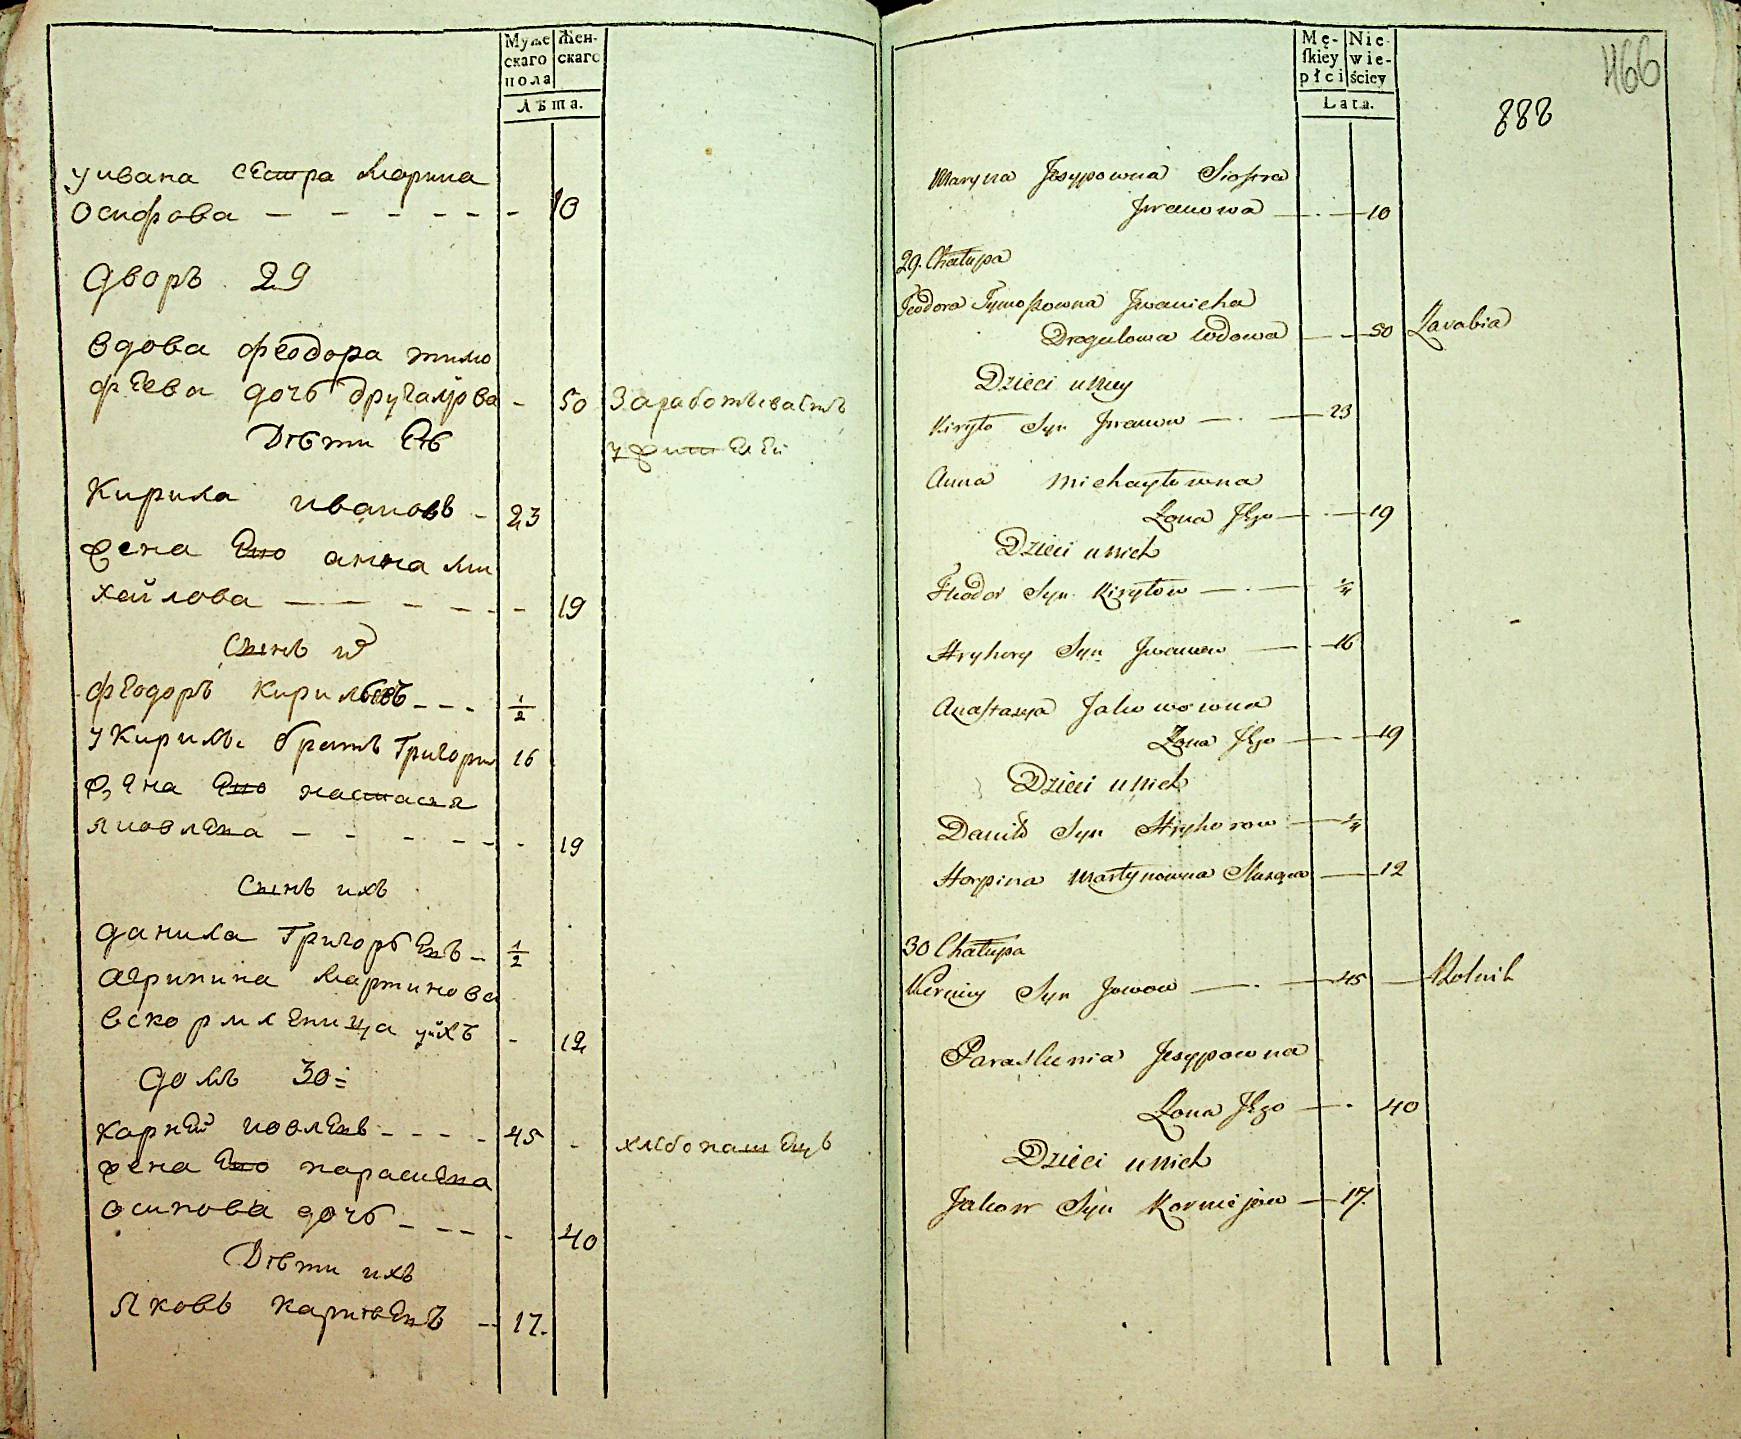 Муже Жен-
скаго скаго
пола
Лѣта.
у ивана сестра Марина
Осифова - - - - - - 10
Дворъ 29
Вдова феодора тимо
феева дочь Другалюва - 50 Заработываетъ
Дѣти Ее
Кирила ивановъ - 23
жена Его анна Ми
хайлова - - - - - - 19
Сынъ их
феодоръ Кириловъ - - - 1/2
у Кирилы братъ Григори 16
жена Его настасья
Яковлева - - - - - - 19
Сынъ ихъ
Данила Григорьевъ - 1/2
Агрипина Мартинова
вскормленица у ихъ - 12
домъ 30
Карней иовлевъ - - - - 45 - хлебопашецъ
жена Его параскева
Осипова дочь - - - - 40
Дѣти ихъ
Яковъ карнѣевъ - 17.
Mę- Nie-
skiey wie-
płci ściey
Lata.
466
888
Maryna Jesypowna Siostra
Jwanowa 10
29. Chałupa
Teodora Tymoszowna Jwanicha
Drogalowa Wdowa 50 Zarabia
Dzieci u niey
Kiryło Syn Jwanow 23
Anna Michayłowna
Żona Jego 19
Dzieci u nich
Fheodor Syn Kiryłow 1/2
Hryhory Syn Jwanow 16
Anastasya Jakowowna
Żona Jego 19
Dzieci u nich
Daniło Syn Hryhorow 1/2
Horpina Martynowna Służąca 12
30 Chałupa
Kerniey Syn Jowow 45 Rolnik
Paraskienia Jesypowna
Żona Jego 40
Dzieci u nich
Jakow Syn Korniejow 17.